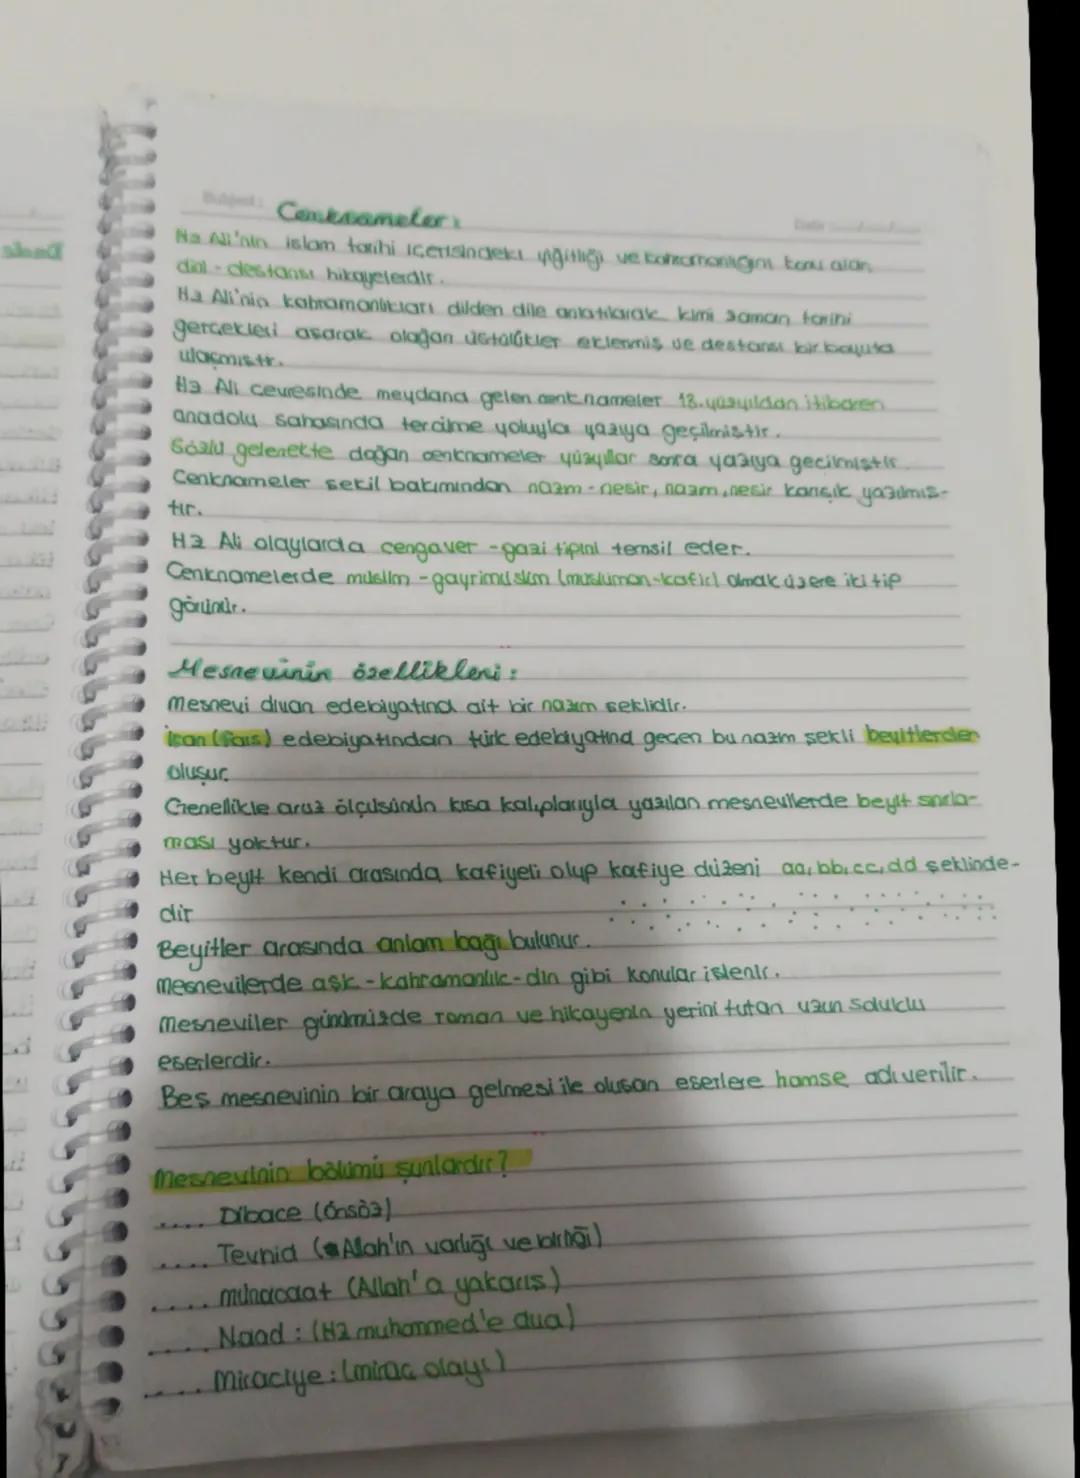 Subject:
Cenknameler:
Hz Ali'nin islam tarihi içerisindeki yiğitliği ve kahramanlığını konu alan
dini - destansı hikayelerdir.
Hz Ali'nin kahramanlıkları dilden dile anlatılarak kimi zaman tarihi
gerçekleri aşarak olağan üstülükler eklenmiş ve destansı bir boyuta
ulaşmıştır.
Hz Ali çevresinde meydana gelen cenknameler 13. yüzyıldan itibaren
anadolu sahasında tercüme yoluyla yazıya geçilmiştir.
Sözlü gelenekte doğan cenknameler yüzyıllar sonra yazıya gecilmistir.
Cenknameler sekil bakımından nazm - nesir, nazm, nesir karışık yazılmıs-
tır.
Hz Ali olaylarda cengaver - gazi tipini temsil eder.
Cenknamelerde müslim - gayrimüslim (müslüman-kafir) olmak üzere iki tip
görünür.
Mesnevinin özellikleri:
Mesnevi divan edebiyatına ait bir nazım seklidir.
İran (fars) edebiyatından türk edebiyatına geçen bu nazm şekli beyitlerden
oluşur.
Genellikle aruz ölçüsünün kısa kalıplarıyla yazılan mesnevilerde beyit sınırla-
ması yoktur.
Her beyit kendi arasında kafiyeli olup kafiye düzeni aa, bb, cc, dd şeklinde-
dir
Beyitler arasında anlam bağı bulunur.
Mesnevilerde aşk - kahramanlık - din gibi konular islenir.
Mesneviler günümüzde roman ve hikayenin yerini tutan uzun soluklu
eserlerdir.
Beş mesnevinin bir araya gelmesi ile olusan eserlere hamse adı verilir.
Mesnevinin bölümü şunlardır?
.... Dibace (önsöz)
.... Tevhid (Allah'ın varlığı ve birliği)
.... münacaat (Allah'a yakarıs)
.... Naad : (Hz muhammed'e dua)
.... Miraciye : (mirac olayı)